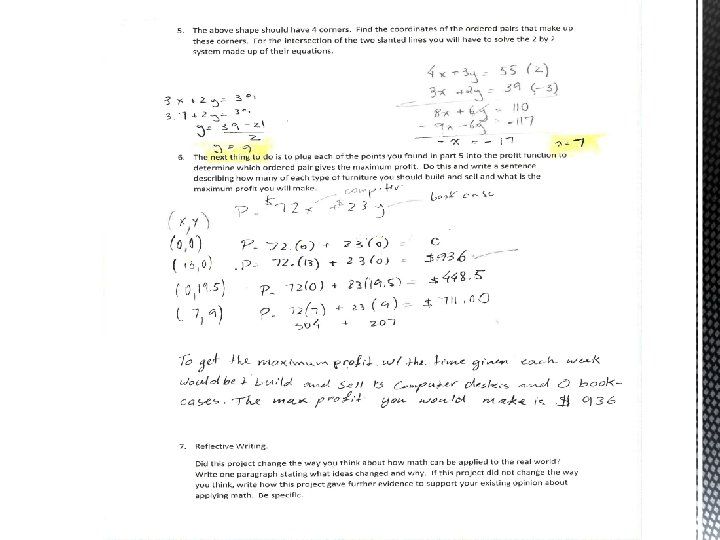 5. The above shape should have 4 corners. Find the coordinates of the ordered pairs that make up
these corners. For the intersection of the two slanted lines you will have to solve the 2 by 2
system made up of their equations.
4x + 3y = 55 (2)
3x + 2y = 39 (-3)
8x + 6y = 110
- 9x - 6y = -117
- x = - 17
x=7
3x + 2y =
3.7 + 2y =
y = 39 - 21
2
y = 9
6. The next thing to do is to plug each of the points you found in part 5 into the profit function to
determine which ordered pair gives the maximum profit. Do this and write a sentence
describing how many of each type of furniture you should build and sell and what is the
maximum profit you will make.
computer
book case
P = $72x + $23y
(x,y)
(0,0) P= 72.(0) + 23(0) = 0
(13,0) .P= 72.(13) + 23(0) = $936
(0,19.5) P= 72(0) + 23(19.5) = $448.5
(7,9) P= 72(7) + 23(9) = $711.00
504 + 207
To get the maximum profit w/ the time given each week
would be to build and sell 13 computer desks and 0 book-
cases. The max profit you would make is $936
7. Reflective Writing.
Did this project change the way you think about how math can be applied to the real world?
Write one paragraph stating what ideas changed and why. If this project did not change the way
you think, write how this project gave further evidence to support your existing opinion about
applying math. Be specific.